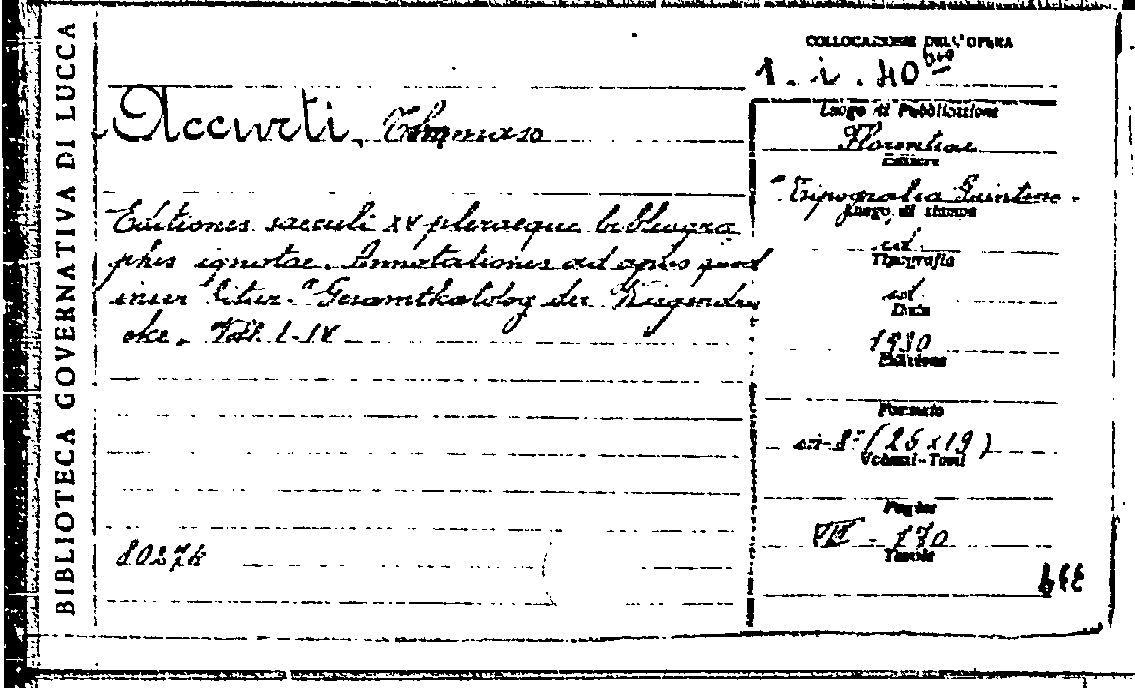 BIBLIOTECA GOVERNATIVA DI LUCCA
COLLOCAZIONE DELL'OPERA
1. i. 40
Accurti, Thommaso
Editiones saeculi XV pleraeque bibliogra
phis ignotae. Annotationes ad opus quod
inscribitur "Gesamtkatalog der Wiegendru
cke". Voll. I-IV
80274
Luogo di Pubblicazione
Florentiae
Editore
"Tipografia Giuntina"
Luogo di stampa
id.
Tipografia
id.
Data
1930
Edizione
Formato
in-8° (26 x 19)
Volumi-Tomi
Pagine
VII - 170
Tavole